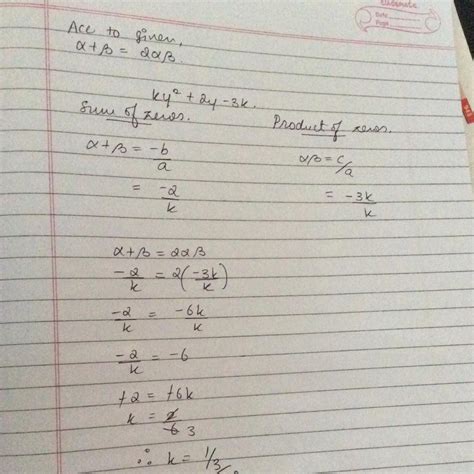 Classmate
Date
Page
Acc to given,
α+β = 2αβ
ky² + 2y - 3k.
Sum of zeros.
α+β = -b/a
= -2/k
Product of zeros.
αβ = c/a
= -3k/k
α+β = 2αβ
-2/k = 2(-3k/k)
-2/k = -6k/k
-2/k = -6
+2 = +6k
k = 2/6 3
∴ k = 1/3